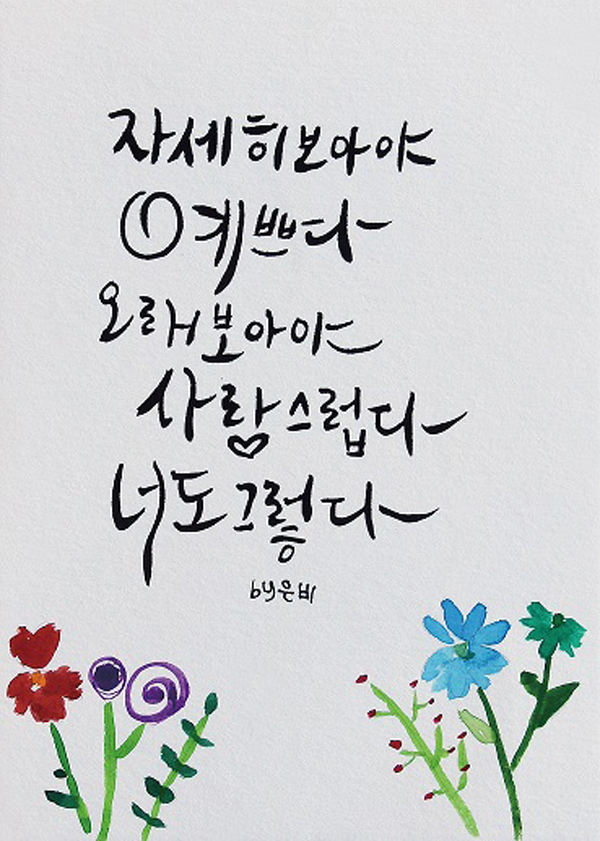 자세히보아야
예쁘다
오래보아야
사랑스럽다
너도그렇다
by은비